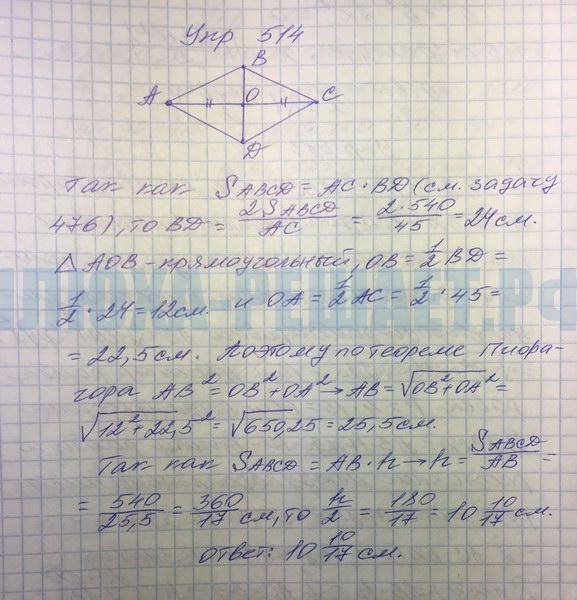 Упр 514
B
A O C
D
Так как SABCD = AC · BD (см. задачу
476), то BD = 2SABCD/AC = 2·540/45 = 24 см.
△AOB - прямоугольный, OB = 1/2 BD =
1/2 · 24 = 12 см. и OA = 1/2 AC = 1/2 · 45 =
= 22,5 см. Поэтому по теореме Пифа-
гора AB² = OB² + OA² → AB = √OB² + OA² =
√12² + 22,5² = √650,25 = 25,5 см.
Так как SABCD = AB · h → h = SABCD/AB =
= 540/25,5 = 360/17 см, то h/2 = 180/17 = 10 10/17 см.
Ответ: 10 10/17 см.